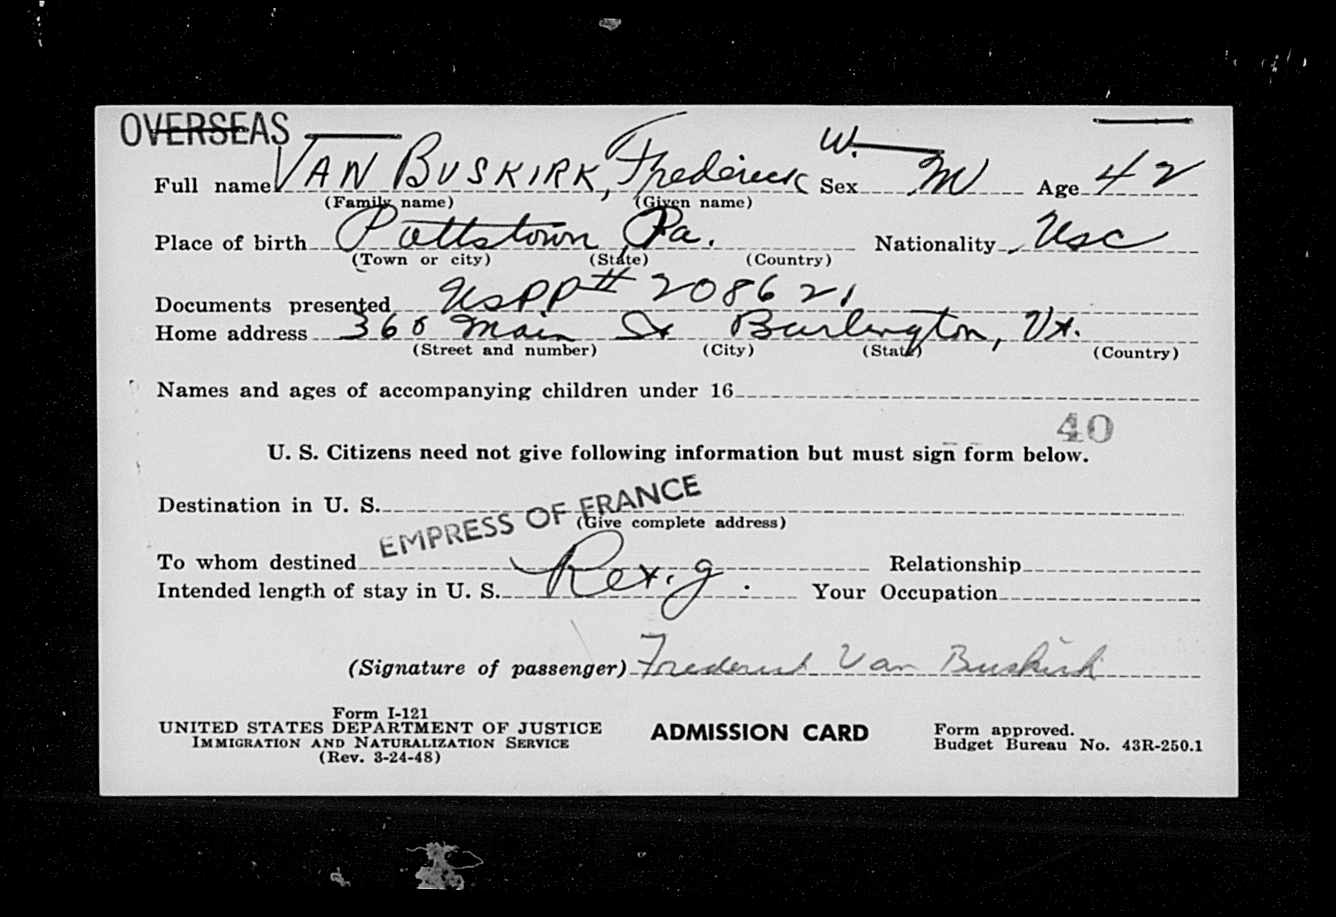 OVERSEAS
W.
Full name VAN BUSKIRK, Frederick Sex M Age 42
(Family name) (Given name)
Place of birth Pottstown Pa. Nationality USC
(Town or city) (State) (Country)
Documents presented USPP# 208621
Home address 360 Main St Burlington, Vt.
(Street and number) (City) (State) (Country)
Names and ages of accompanying children under 16
40
U. S. Citizens need not give following information but must sign form below.
Destination in U. S.
EMPRESS OF FRANCE
(Give complete address)
To whom destined Relationship
Intended length of stay in U. S. Your Occupation
(Signature of passenger) Frederick Van Buskirk
Form I-121
UNITED STATES DEPARTMENT OF JUSTICE
IMMIGRATION AND NATURALIZATION SERVICE
(Rev. 3-24-48)
ADMISSION CARD
Form approved.
Budget Bureau No. 43R-250.1